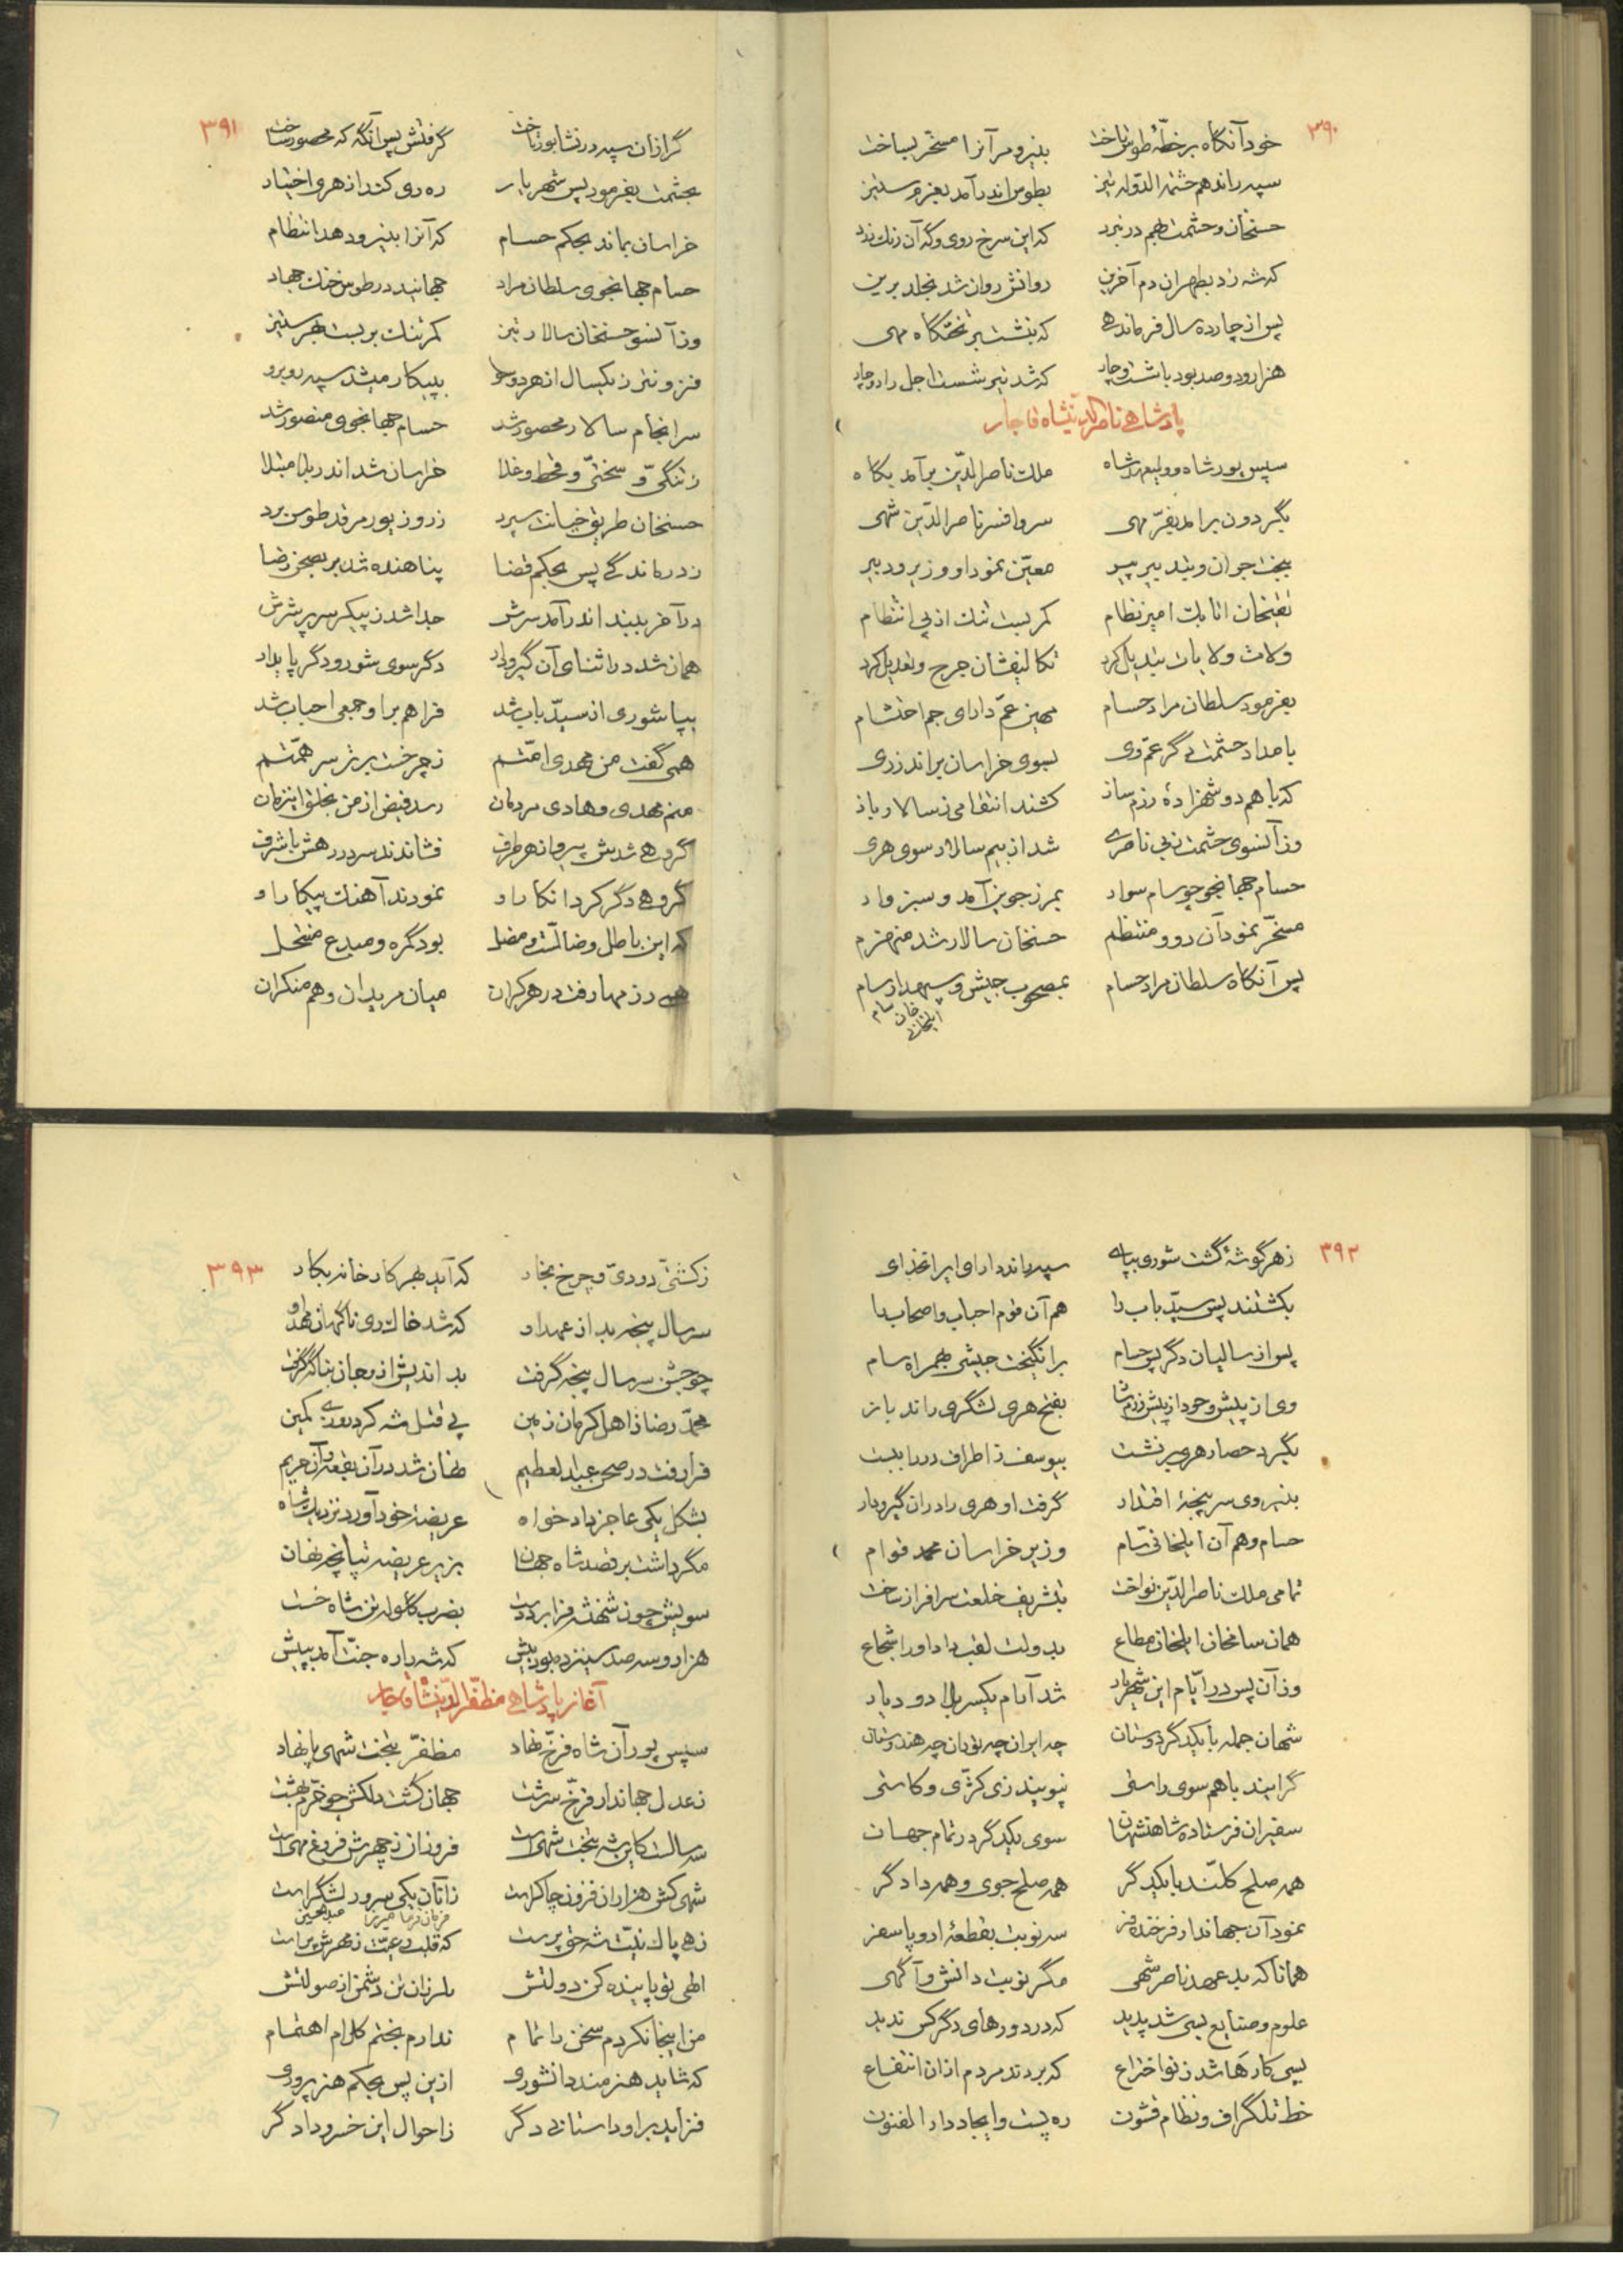 ۳۹۰
خود آنگاه بر خطّهٔ طوس تاخت بنیرو مر آنرا مسخّر بساخت
سپه راند هم حشمة الدّوله نیز بطوس اندر آمد بعزم ستیز
حسنخان و حشمت بهم در نبرد که این سرخ روی و گه آن رنگ زرد
که شه زد بطهران دم آخرین روانش روان شد بخلد برین
پس از چارده سال فرماندهی که بنشست بر تختگاه مهی
هزار و دو صد بود با شصت و چار که شد تیر شست اجل را دوچار
پادشاهی ناصرالدینشاه قاجار
سپس پور شاه و ولیعهد شاه ملک ناصرالدّین برآمد بگاه
بگردون برآمد بفرّ مهی سر و افسر ناصرالدّین شهی
ببخت جوان و بتدبیر پیر معیّن نمود او وزیر و دبیر
تقیخان اتابک امیر نظام کمر بست تنگ از پی انتظام
ولات و ولایات تبدیل کرد تکالیفشان جرح و تعدیل کرد
بفرمود سلطان مراد حسام مهین عمّ دارای جم احتشام
بامداد حشمت دگر عمّ وی بسوی خراسان براند ز ری
که با هم دو شهزادهٔ رزم ساز کشند انتقامی ز سالار باز
وز آنسوی حشمت ز بی ناصری شد از بیم سالار سوی هری
حسام جهانجو چو سام سوار بمرز جوین آمد و سبزوار
مسخّر نمود آن دو و منتظم حسنخان سالار شد منهزم
پس آنگاه سلطان مراد حسام بمصحوب جیش و سپهدار سام
سام خان ایلخانی
۳۹۱
گرازان سپه در نشابور تاخت گرفتش پس آنگه که محصور ساخت
بحشمت بفرمود پس شهریار ره ری کند از هری اختیار
خراسان بماند بحکم حسام که آنرا بنیرو دهد انتظام
حسام جهانجوی سلطان مراد جهانید در طوس خنگ جهاد
وز آنسو حسنخان سالار نیز کمر تنگ بربست بهر ستیز
فزونتر ز یکسال از هر دو سو بپیکار میشد سپه روبرو
سرانجام سالار محصور شد حسام جهانجوی منصور شد
ز تنگیّ و سختیّ و قحط و غلا خراسان شد اندر بلا مبتلا
حسنخان طریق خیانت سپرد زر و زیور مرقد طوس برد
ز درماندگی پس بحکم قضا پناهنده شد بر بصحن رضا
در آخر ببند اندر آمد سرش جدا شد ز پیکر سر پر شرش
همان شد در اثنای آن گیرودار دگر سوی شور و دگر پایدار
بپا شوری از سیّد باب شد فراهم بر او جمعی احباب شد
همی گفت من مهدی امّتم ز چرخست برتر سر همّتم
منم مهدی و هادی مردمان رسد فیض از من بخلق این زمان
گروهی شدش پیرو از هر طرف فشاندند سر در رهش با شرف
گروهی دگر کرد انکار او نمودند آهنگ پیکار او
که این باطل و ضالّ است و مضلّ بود گمره و مبدع منتحل
بسی رزمها رفت در هر کران میان مریدان و هم منکران
۳۹۲
ز هر گوشهٔ گشت شوری بپای سپه راند دارای ایرانخدای
بکشتند پس سیّد باب را هم آن قوم احباب و اصحاب را
پس از سالیان دگر پس حسام برانگیخت جیشی بهمراه سام
بفتح هری لشگری راند باز
بگرد حصار هری برنشست بیوسف ز اطراف در را ببست
بنیروی سرپنجهٔ اقتدار گرفت او هری را در آن گیرودار
حسام و هم آن ایلخانی سام وزیر خراسان محمد قوام
تمامی ملک ناصرالدّین نواخت بتشریف خلعت سرافراز ساخت
همان سامخان ایلخان مطاع بدولت لقب داد او را شجاع
وزآن پس در ایّام این شهریار شد آرام یکسر بلاد و دیار
شهان جمله با یکدگر دوستان چه ایران چه توران چه هندوستان
گرایند با هم سوی راستی نپویند زی کژّی و کاستی
سفیران فرستاده شاهنشهان سوی یکدگر در تمام جهان
همه صلح کلّند با یکدگر همه صلح جوی و همه دادگر
نمود آن جهاندار فرخنده فر سه نوبت بقطعهٔ اروپا سفر
همانا که بد عهد ناصر شهی مگر نوبت دانش و آگهی
علوم و صنایع بسی شد پدید که در دورهای دگر کس ندید
بسی کارها شد ز نو اختراع که بردند مردم ازان انتفاع
خط تلگراف و نظام قشون ره پست و ایجاد دار الفنون
۳۹۳
ز کشتیّ دودیّ و چرخ بخار که آید بهر کارخانه بکار
سر سال پنجه بد از عهد او که شد خاک ری ناگهان مهد او
چو جشن سر سال پنجه گرفت بداندیش از وی جان بناگه گرفت
محمّد رضا ز اهل کرمان زمین پی قتل شه کرده بودی کمین
فرا رفت در صحن عبد العظیم نهان شد در آن بقعه و آن حریم
بشکل یکی عاجز دادخواه عریضهٔ خود آورد نزدیک شاه
مگر داشت بر قصد شاه جهان بزیر عریضه تپانچه نهان
سویش چون شهنشه فرا برد دست بضرب گلوله تن شاه خست
هزار و سه صد سیزده بود بیش که شه را ره جنّت آمد بپیش
آغاز پادشاهی مظفّرالدّینشاه قاجار
سپس پور آن شاه فرّخ نهاد مظفّر بتخت شهی پا نهاد
ز عدل جهاندار فرّخ سرشت جهان گشت دلکش چو خرّم بهشت
سه سالست کاین شه بتخت شهی است فروزان ز چهرش فروغ مهی است
شهی کش هزاران فزون چاکر است ز آنان یکی سرور لشگر است
فرمانفرما میرزا عبدالحسین
زهی پاک نیّت شه حق پرست که قلب رعیّت ز مهرش پر است
الهی تو پاینده کن دولتش بلرزان تن دشمن از صولتش
من اینجا نکردم سخن را تمام ندارم بختم کلام اهتمام
که شاید هنرمند دانشوری ازین پس بحکم هنرپروری
فزاید بر او داستانی دگر ز احوال این خسرو دادگر